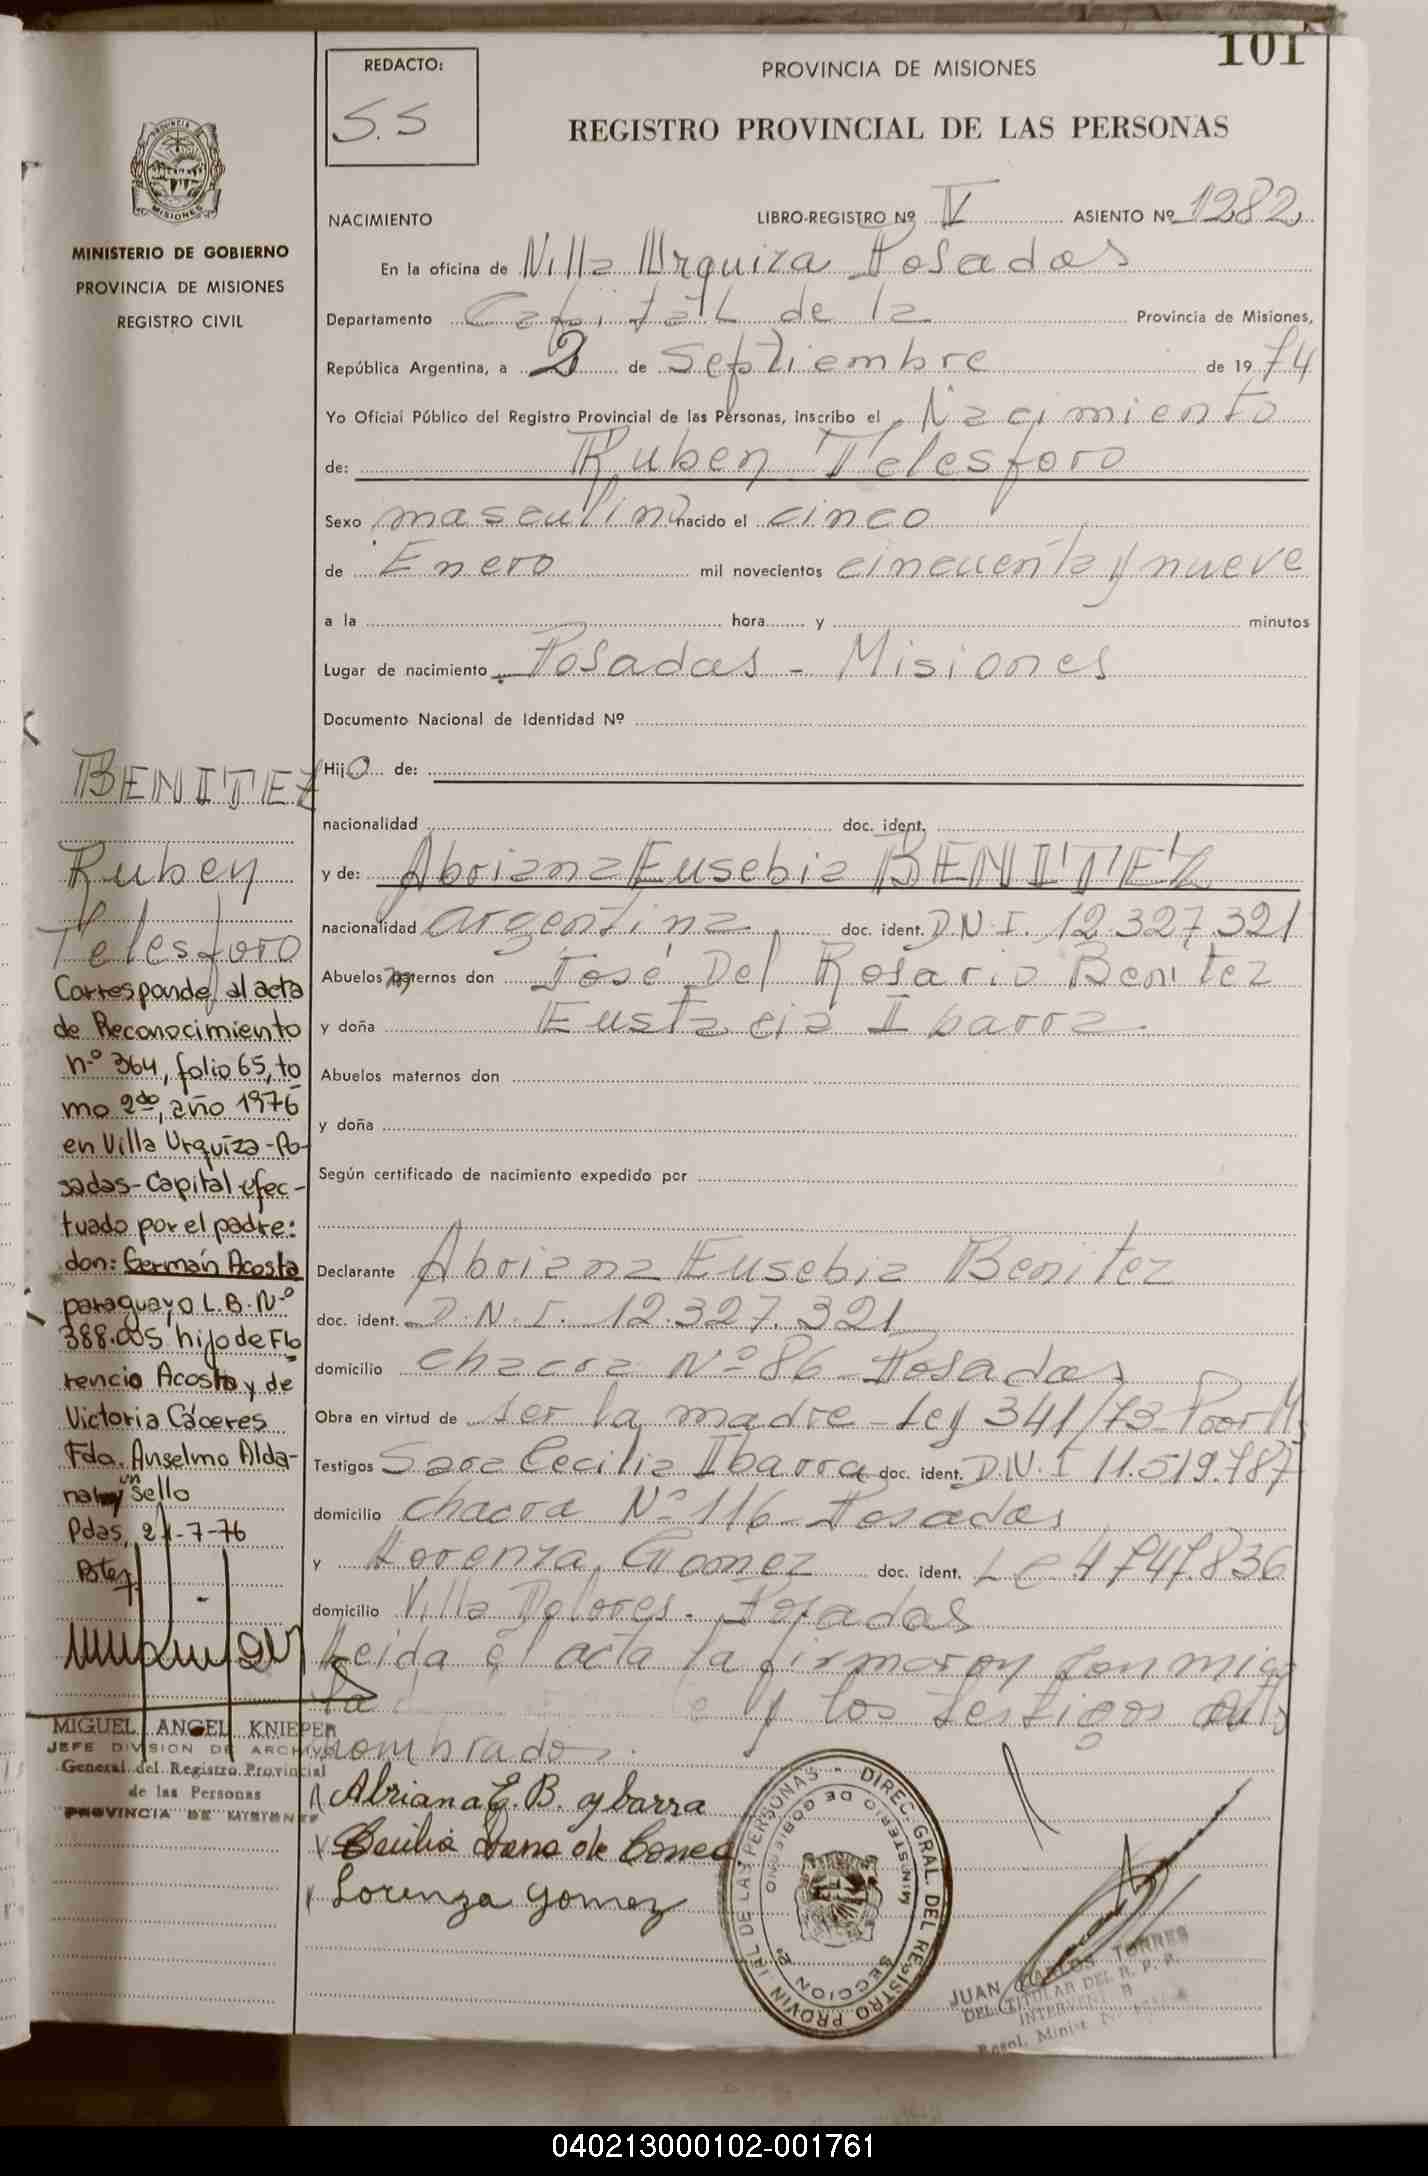 101
REDACTO:
S.S
PROVINCIA DE MISIONES
REGISTRO PROVINCIAL DE LAS PERSONAS
PROVINCIA
MISIONES
MINISTERIO DE GOBIERNO
PROVINCIA DE MISIONES
REGISTRO CIVIL
NACIMIENTO LIBRO-REGISTRO Nº V ASIENTO Nº 1282
En la oficina de Villa Urquiza Posadas
Departamento Capital de la Provincia de Misiones,
República Argentina, a 2 de Septiembre de 1974
Yo Oficial Público del Registro Provincial de las Personas, inscribo el Nacimiento
de: Ruben Telesforo
Sexo masculino nacido el cinco
de Enero mil novecientos cincuenta y nueve
a la hora y minutos
Lugar de nacimiento Posadas - Misiones
Documento Nacional de Identidad Nº
Hijo de:
nacionalidad doc. ident.
y de: Abriana Eusebia BENITEZ
nacionalidad argentina doc. ident. D.N.I. 12.327.321
Abuelos maternos don José Del Rosario Benitez
y doña Eustacia Ibarra
Abuelos maternos don
y doña
Según certificado de nacimiento expedido por
Declarante Abriana Eusebia Benitez
doc. ident. D.N.I. 12.327.321
domicilio chacra Nº 86 Posadas
Obra en virtud de ser la madre - Ley 341/73 Poor M.
Testigos Sara Cecilia Ibarra doc. ident. D.N.I 11.519.787
domicilio chacra Nº 116 - Posadas
y Lorenza Gomez doc. ident. LC 4747.836
domicilio Villa Dolores - Posadas
Leida el acta la firmaron conmigo
la y los testigos
nombrados.
Abriana E. B. ybarra
Cecilia Sara de
Lorenza Gomez
BENITEZ
Ruben
Telesforo
Corresponde al acta
de Reconocimiento
n.º 364, folio 65, to
mo 2do, año 1976
en Villa Urquiza-Po-
sadas-Capital efec-
tuado por el padre:
don: Germán Acosta
paraguayo L.B.Nº
388.005 hijo de Flo
rencio Acosta y de
Victoria Cáceres
Fdo. Anselmo Alda-
na hay un sello
Pdas, 21-7-76
MIGUEL ANGEL KNIEPER
JEFE DIVISION DE ARCHIVO
General del Registro Provincial
de las Personas
PROVINCIA DE MISIONES
DIREC. GRAL. DEL REGISTRO PROVINCIAL DE LAS PERSONAS
MINISTERIO DE GOBIERNO
SECCION 2ª
JUAN CARLOS TORRES
DEL. TITULAR DEL R. P. P.
Resol. Minist. N
040213000102-001761